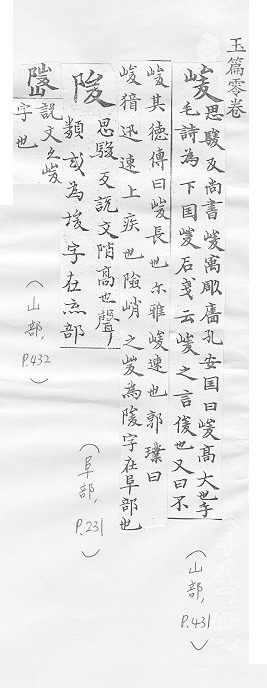 玉篇零卷
峻 思駿反尚書峻寓雕廧孔安国曰峻髙大也
毛詩為下国峻后戔云峻之言俊也又曰不
峻其徳傳曰峻長也尓雅峻速也郭璞曰
峻猎迅速上疾也險峭之峻為陖字在阜部也
(山部, P.431)
陖 思駿反說文陗髙也聲
類或為埈字在土部
(阜部, P.231)
說文亦峻
字也
(山部, P.432)